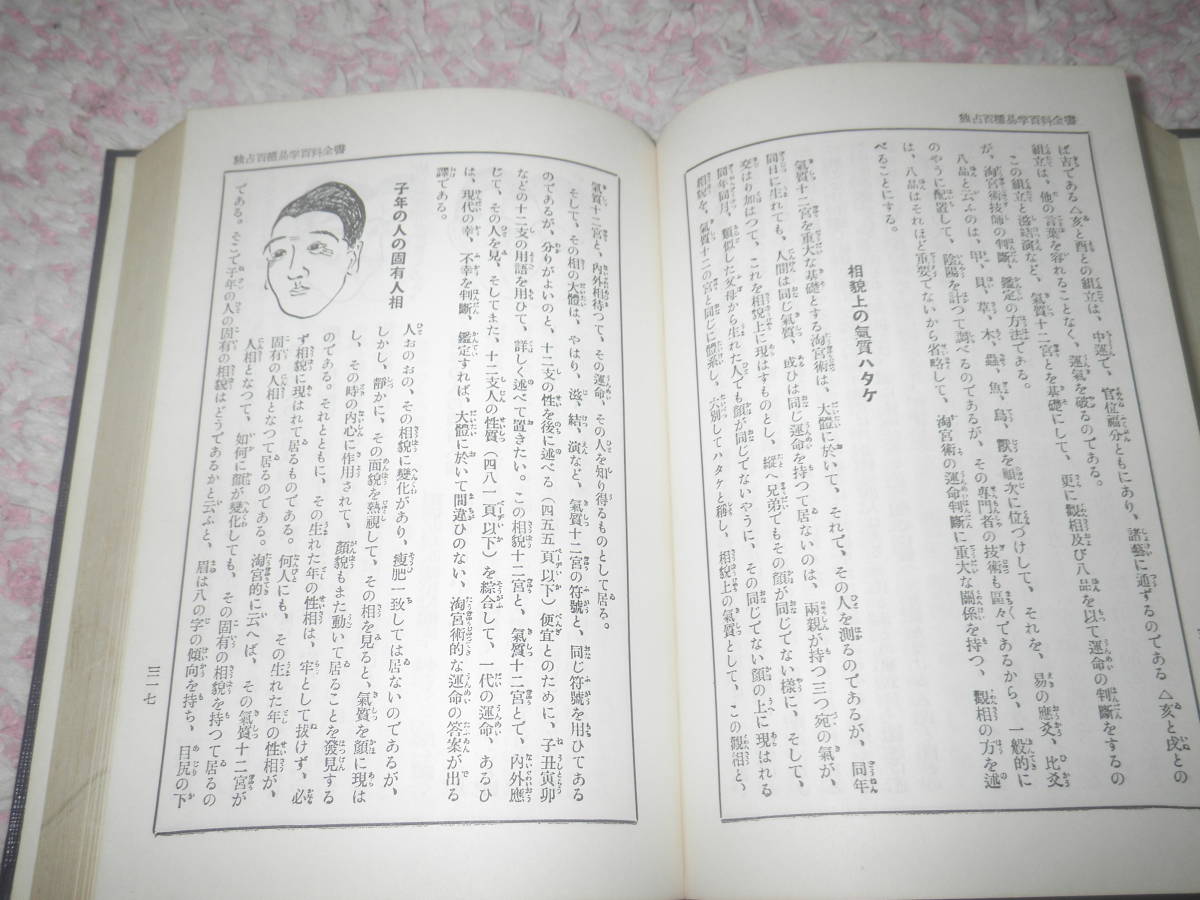 独占百種易学百科全書
ば吉である△亥と酉との組立は、中運で、官位福分ともにあり、諸藝に通ずるのである△亥と戌との
組立は、他の言葉を容れることなく、運氣を破るのである。
この組立と滋結演など、氣質十二宮とを基礎にして、更に觀相及び八品を以て運命の判斷をするの
が、淘宮術技師の判斷、鑑定の方法である。
八品と云ふのは、甲、貝、草、木、蟲、魚、鳥、獸を順次に位づけして、それを、易の應爻、比爻
のやうに配置して、陰陽を計つて調べるのであるが、その專門者の技術も區々であるから、一般的に
は、八品はそれほど重要でないから省略して、淘宮術の運命判斷に重大な關係を持つ、觀相の方を述
べることにする。
相貌上の氣質ハタケ
氣質十二宮を重大な基礎とする淘宮術は、大體に於いて、それで、その人を測るのであるが、同年
同日に生れても、人間は同じ氣質、或ひは同じ運命を持つて居ないのは、兩親が持つ三つ宛の氣が、
交はり加はつて、これを相貌上に現はすものとし、縱へ兄弟でもその顏が同じでない樣に、そして、
同年同月、類似した父母から生れた人でも顏が同じでないやうに、その同じでない顏の上に現はれる
相貌を、氣質十二の宮と同じに體系し、六別してハタケと稱し、相貌上の氣質として、この觀相と、
独占百種易学百科全書
氣質十二宮と、内外相待つて、その運命、その人を知り得るものとして居る。
そして、その相の大體は、やはり、滋、結、演など、氣質十二宮の符號と、同じ符號を用ひてある
のであるが、分りがよいのと、十二支の性を後に述べる（四五五頁以下）便宜とのために、子丑寅卯
などの十二支の用語を用ひて、詳しく述べて置きたい。この相貌十二宮と、氣質十二宮とで、内外應
じて、その人を見、そしてまた、十二支人の性質（四八一頁以下）を綜合して、一代の運命、あるひ
は、現代の幸、不幸を判斷、鑑定すれば、大體に於いて間違ひのない、淘宮術的な運命の答案が出る
譯である。
子年の人の固有人相
人おのおの、その相貌に變化があり、瘦肥一致しては居ないのであるが、
しかし、靜かに、その面貌を熟視して、その相を見ると、氣質を顏に現は
し、その時の内心に作用されて、顏貌もまた動いて居ることを發見する
のである。それとともに、その生れた年の性相は、牢として拔けず、必
ず相貌に現はれて居るものである。何人にも、その生れた年の性相が、
固有の人相となつて居るのである。淘宮的に云へば、その氣質十二宮が
人相となつて、如何に顏が變化しても、その固有の相貌を持つて居るの
である。そこで子年の人の固有の相貌はどうであるかと云ふと、眉は八の字の傾向を持ち、目尻の下
三一七